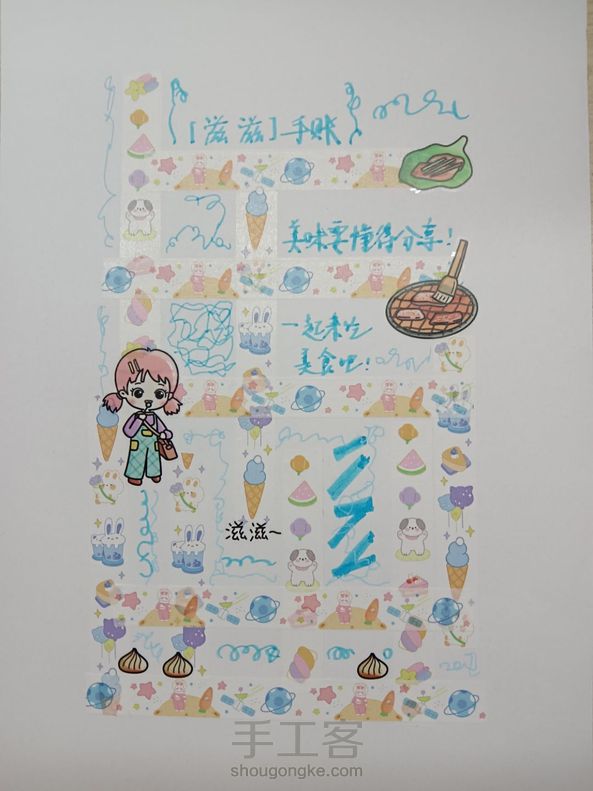 [滋滋]手账
美味要懂得分享!
一起来吃
美食吧!
滋滋~
手工客
shougongke.com